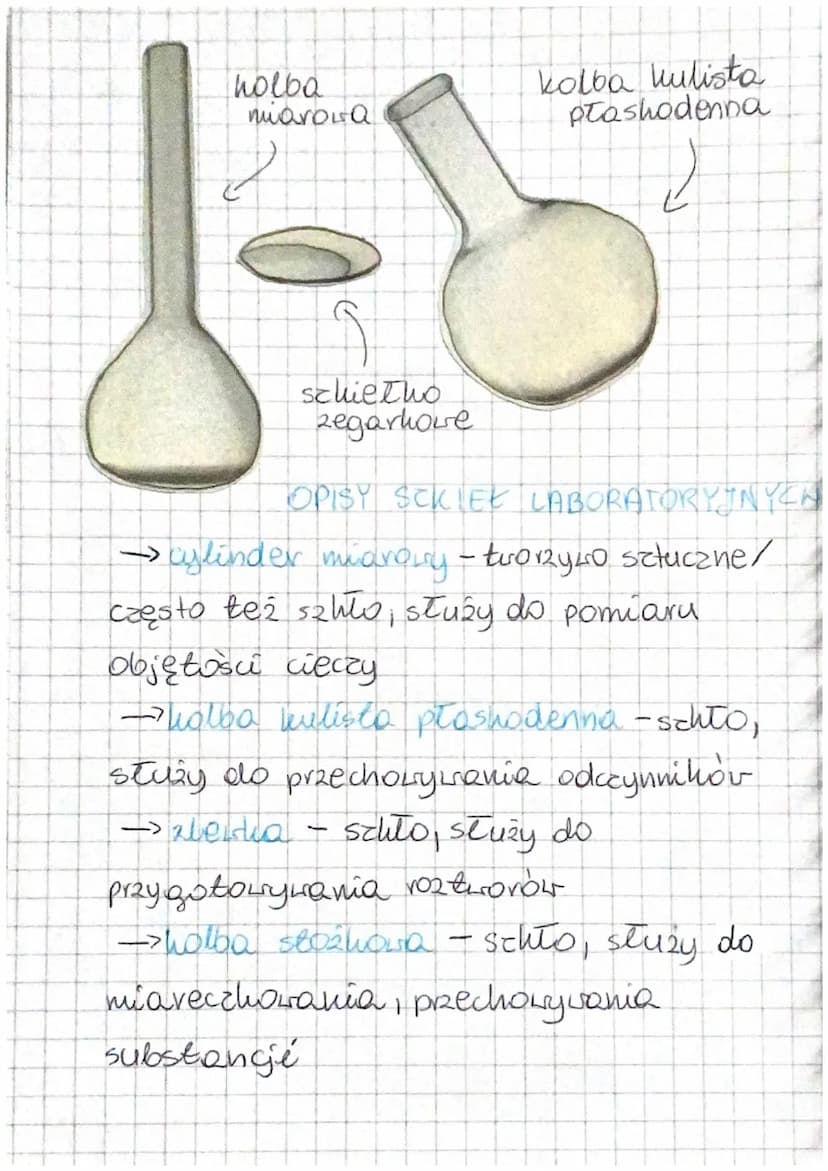 kolba
miarowa
kolba kulista
płaskodenna
szkiełko
zegarkowe
OPISY SZKIEŁ LABORATORYJNYCH
→ cylinder miarowy – tworzywo sztuczne/
często też szkło, służy do pomiaru
objętości cieczy
→ kolba kulista płaskodenna – szkło,
służy do przechowywania odczynników
→ zlewka – szkło, służy do
przygotowywania roztworów
→ kolba stożkowa – szkło, służy do
miareczkowania, przechowywania
substancji